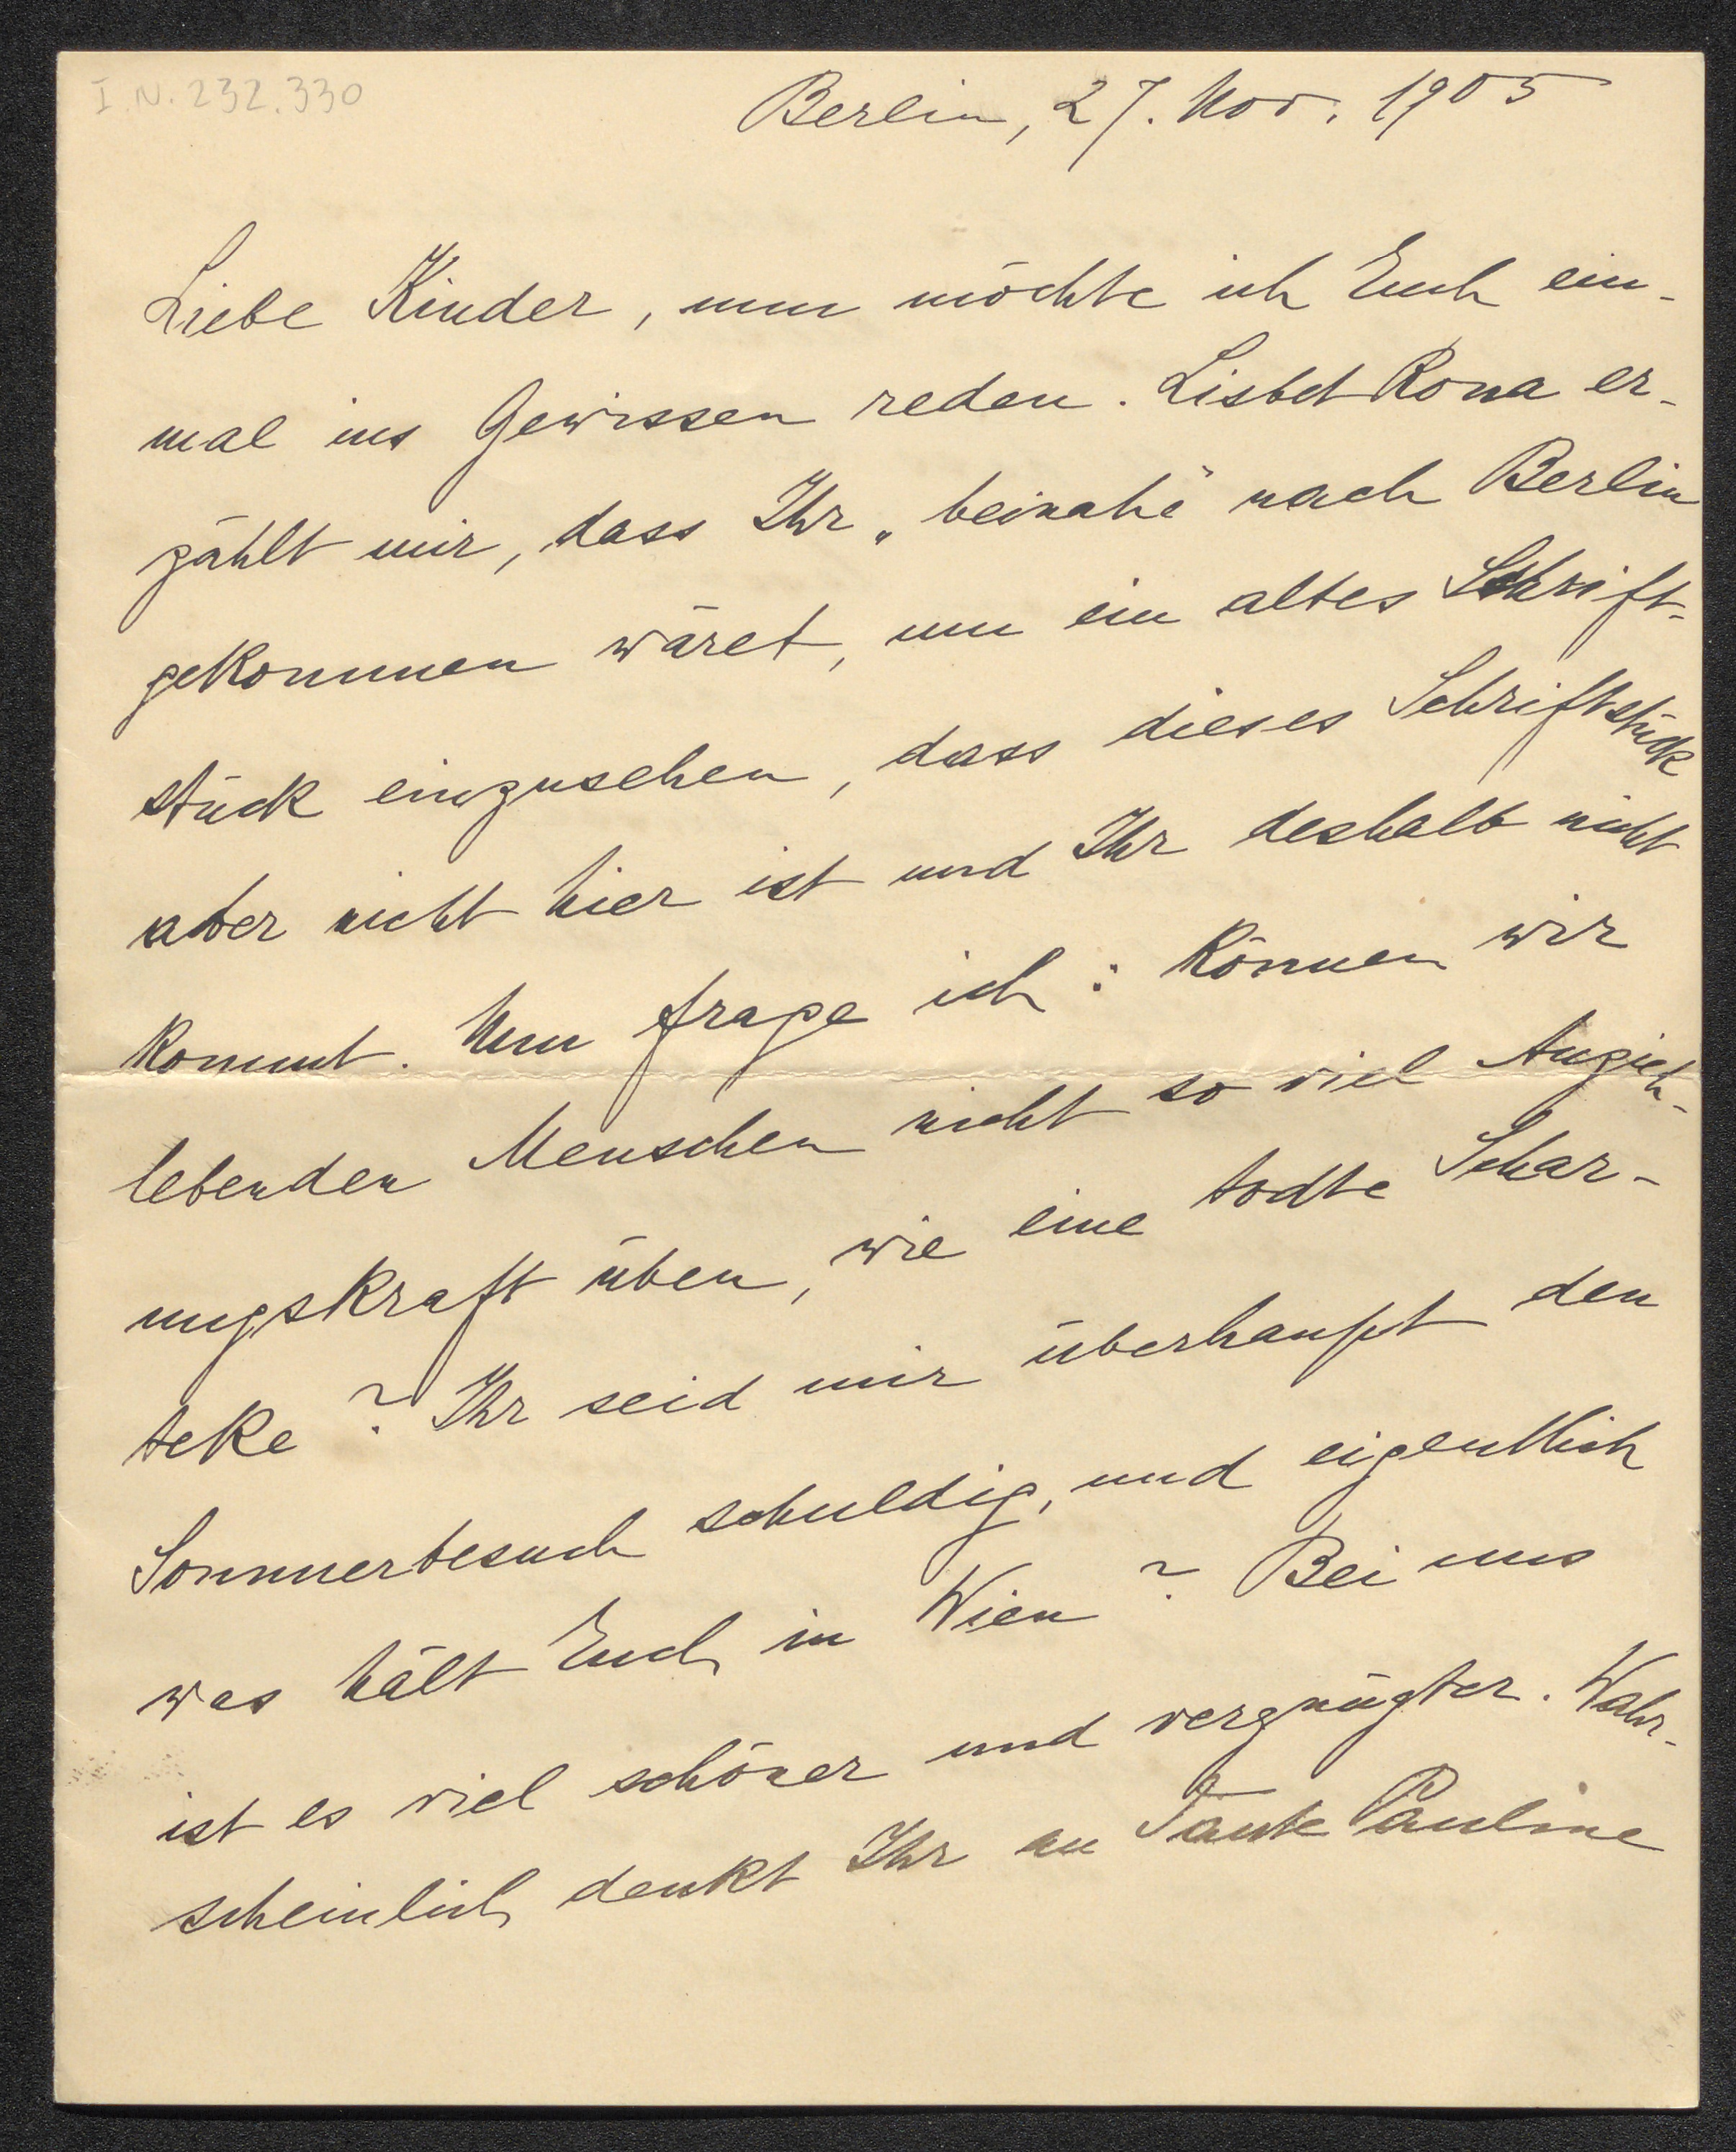 I.N. 232.330
Berlin, 27. Nov. 1905
Liebe Kinder, nun möchte ich Euch ein-
mal ins Gewissen reden. Lisbet Rona er-
zählt mir, dass Ihr „beinahe" nach Berlin
gekommen wäret, um ein altes Schrift-
stück einzusehen, dass dieses Schriftstück
aber nicht hier ist und Ihr deshalb nicht
kommt. Nun frage ich: Können wir
lebenden Menschen nicht so viel Anzieh-
ungskraft üben, wie eine todte Schar-
teke? Ihr seid mir überhaupt den
Sommerbesuch schuldig, und eigentlich
was hält Euch in Wien? Bei uns
ist es viel schöner und vergnügter. Wahr-
scheinlich denkt Ihr an Tante Pauline